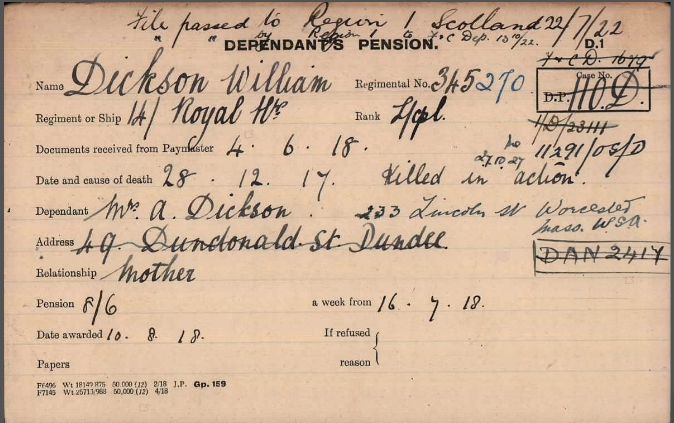 File passed to Region 1 Scotland 22/7/22
" " by Region 1 to F & C Dep. 13/10/22.
DEPENDANT'S PENSION.
D.1
F & C D. 1679
Name Dickson William
Regimental No. 345270
Case No.
D.P. 110 D.
Regiment or Ship 14/ Royal Hrs
Rank L/cpl.
11D/23111
Documents received from Paymaster 4. 6. 18.
27.10.27
11291/OS/D
Date and cause of death 28. 12. 17. Killed in action.
Dependant Mrs. A. Dickson. 233 Lincoln St Worcester
Mass. USA.
Address 49. Dundonald St Dundee.
DAN 2417
Relationship Mother
Pension 8/6 a week from 16. 7. 18.
Date awarded 10. 8. 18. If refused
Papers reason
F6496 Wt 18149/875 50,000 (12) 2/18 J.P. Gp. 159
F7145 Wt 25713/988 60,000 (12) 4/18